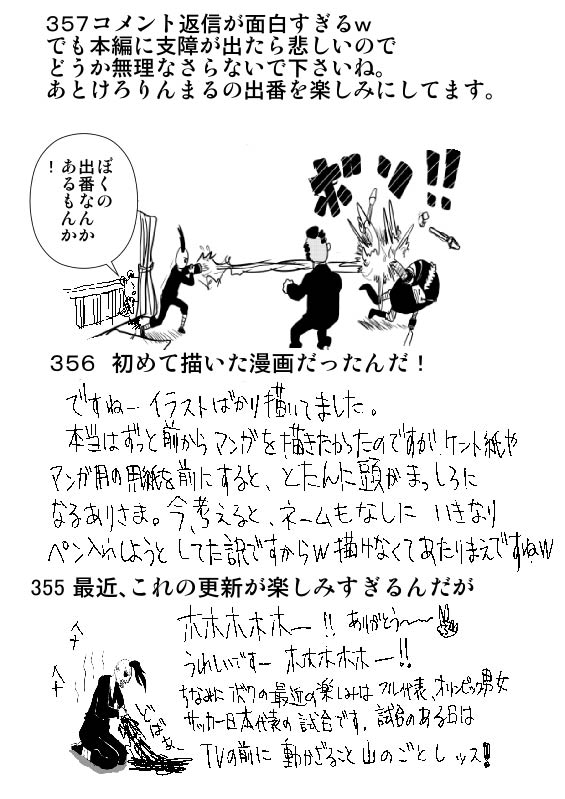 357コメント返信が面白すぎるｗ
でも本編に支障が出たら悲しいので
どうか無理なさらないで下さいね。
あとけろりんまるの出番を楽しみにしてます。
ボン!!
ぼくの
出番なんか
あるもんか
！
356 初めて描いた漫画だったんだ！
ですねー イラストばかり描いてました。
本当はずっと前からマンガを描きたかったのですが、ケント紙や
マンガ用の用紙を前にすると、とたんに頭がまっしろに
なるありさま。今、考えると、ネームもなしに いきなり
ペン入れしようと してた訳ですからw 描けなくてあたりまえですねw
355 最近、これの更新が楽しみすぎるんだが
ホホホホホー!! ありがとう〜〜
うれしいですー ホホホホホー!!
ちなみに ボクの最近の楽しみは フル代表、オリンピック男女
サッカー日本代表の 試合です。試合のある日は
TVの前に 動かざること 山のごとしッス!